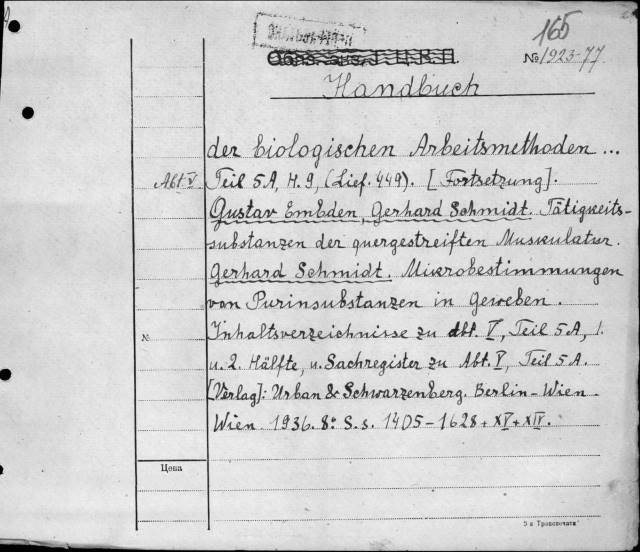 165
№ 1923-77
Handbuch
der biologischen Arbeitsmethoden ...
Abt. V Teil 5A, H. 9, (Lief. 449). [Fortsetzung]:
Gustav Embden, Gerhard Schmidt. Tätigkeits-
substanzen der quergestreiften Muskulatur.
Gerhard Schmidt. Mikrobestimmungen
von Purinsubstanzen in Geweben.
№ Inhaltsverzeichnisse zu Abt. V, Teil 5A, 1.
u. 2. Hälfte, u. Sachregister zu Abt. V, Teil 5A.
[Verlag]: Urban & Schwarzenberg. Berlin-Wien.
Wien 1936. 8: S.s. 1405-1628 + XV + XIV.
Цена
5 я Транспечати